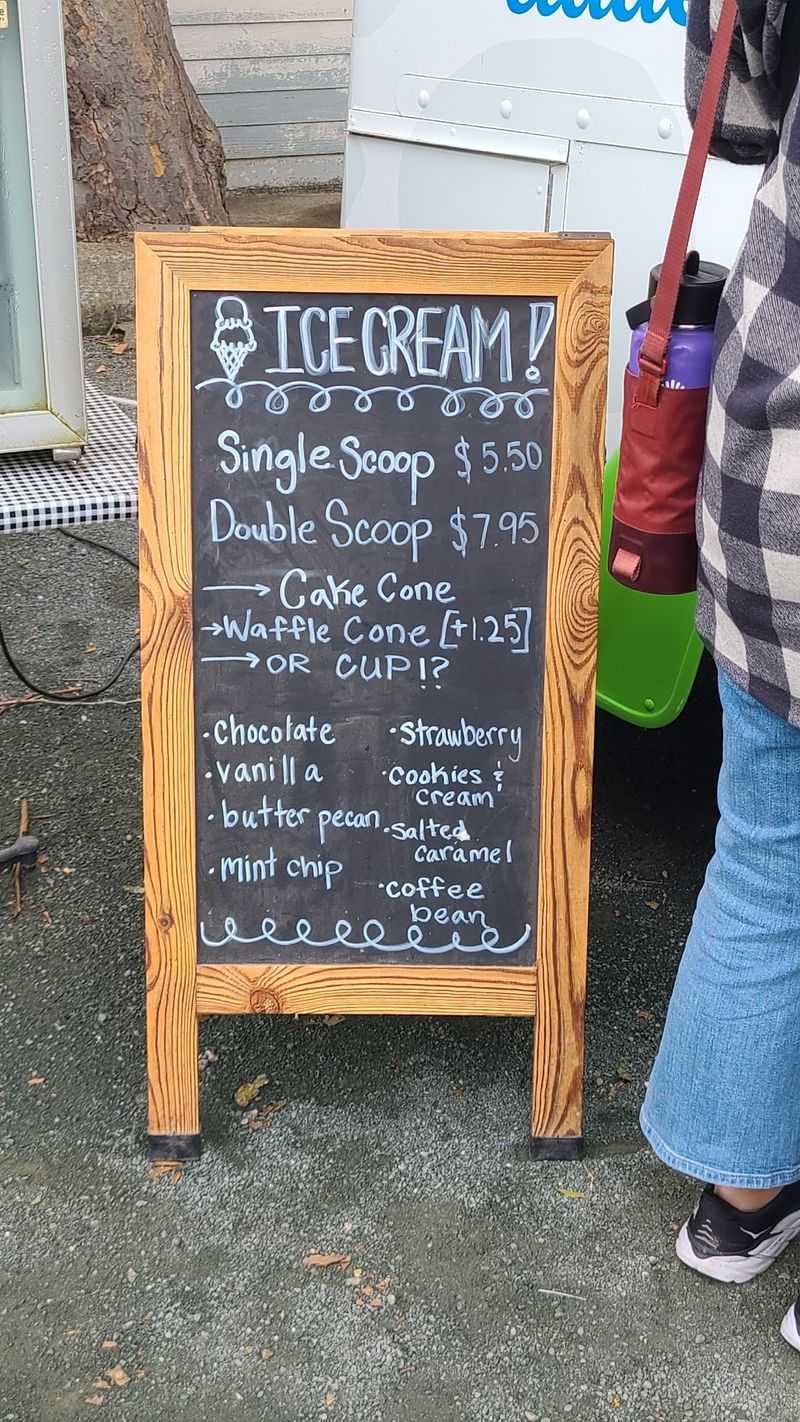 ICE CREAM!
Single Scoop $5.50
Double Scoop $7.95
→ Cake Cone
→ Waffle Cone [+1.25]
→ OR CUP!?
· chocolate
· vanilla
· butter pecan
· mint chip
· strawberry
· cookies &
cream
· salted
caramel
· coffee
bean